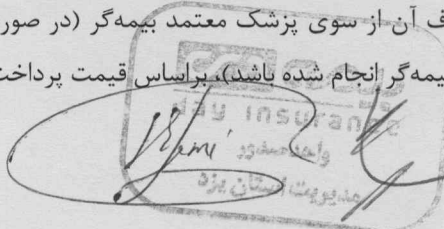 ف آن از سوی پزشک معتمد بیمه‌گر (در صور
یمه‌گر انجام شده باشد)، براساس قیمت پرداخت
insurance
واحد صدور
مدیریت استان یزد